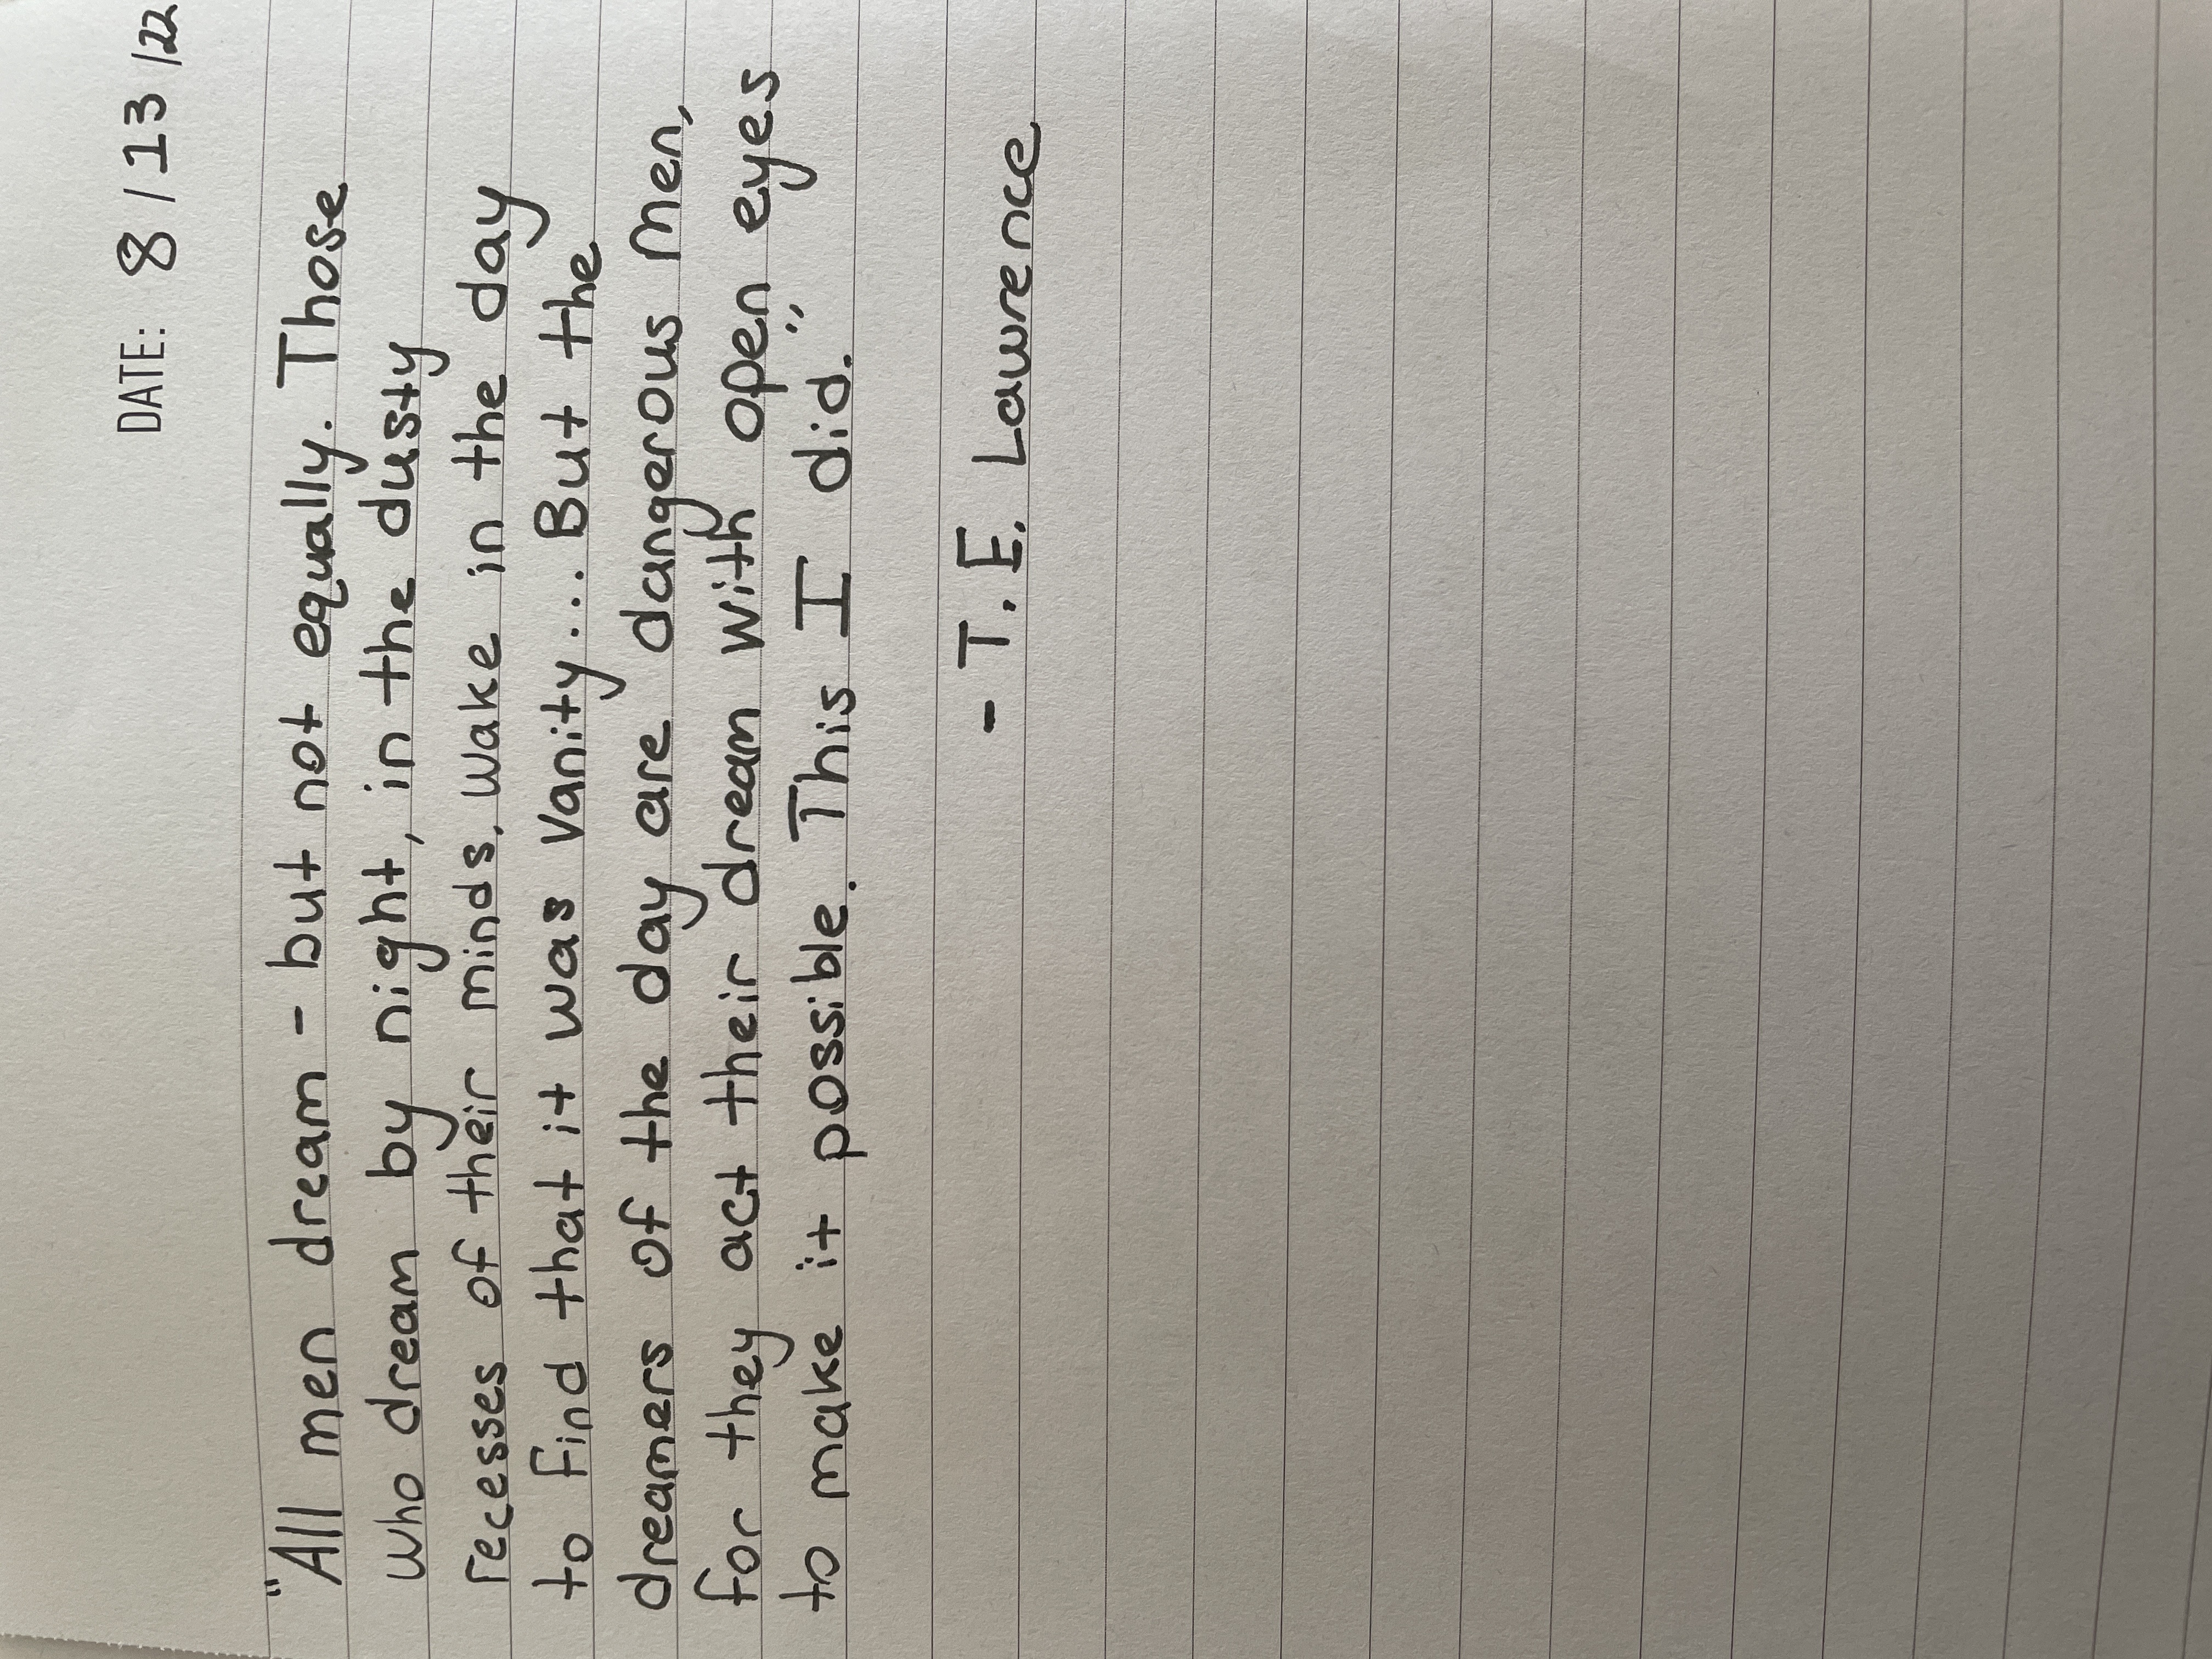 DATE: 8/13/22
"All men dream - but not equally. Those
who dream by night, in the dusty
recesses of their minds, wake in the day
to find that it was vanity... But the
dreamers of the day are dangerous men,
for they act their dream with open eyes
to make it possible. This I did."
- T.E. Lawrence